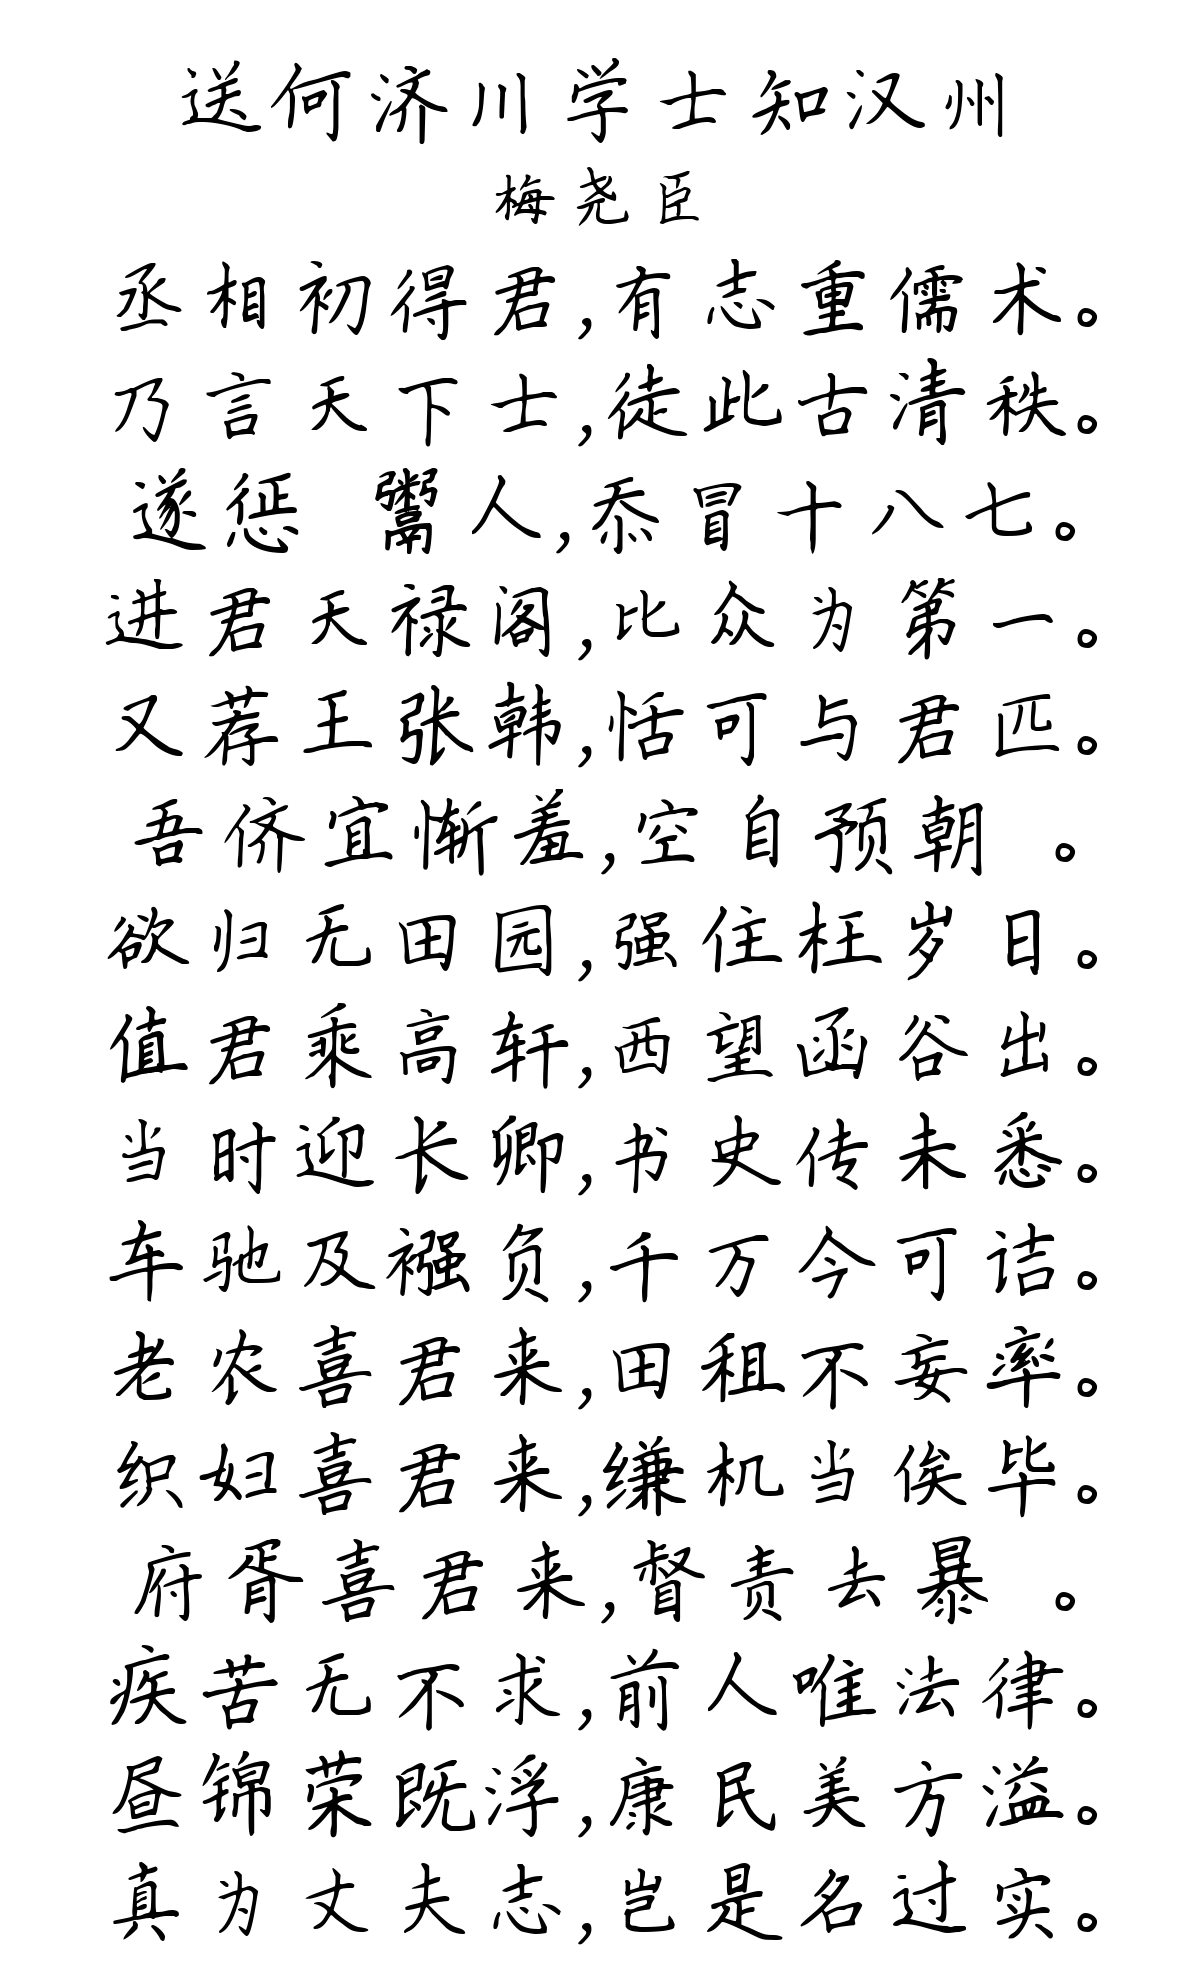 送何济川学士知汉州
梅尧臣
丞相初得君,有志重儒术。
乃言天下士,徒此古清秩。
遂惩 鬻人,忝冒十八七。
进君天禄阁,比众为第一。
又荐王张韩,恬可与君匹。
吾侪宜惭羞,空自预朝 。
欲归无田园,强住枉岁日。
值君乘高轩,西望函谷出。
当时迎长卿,书史传未悉。
车驰及襁负,千万今可诘。
老农喜君来,田租不妄率。
织妇喜君来,缣机当俟毕。
府胥喜君来,督责去暴 。
疾苦无不求,前人唯法律。
昼锦荣既浮,康民美方溢。
真为丈夫志,岂是名过实。